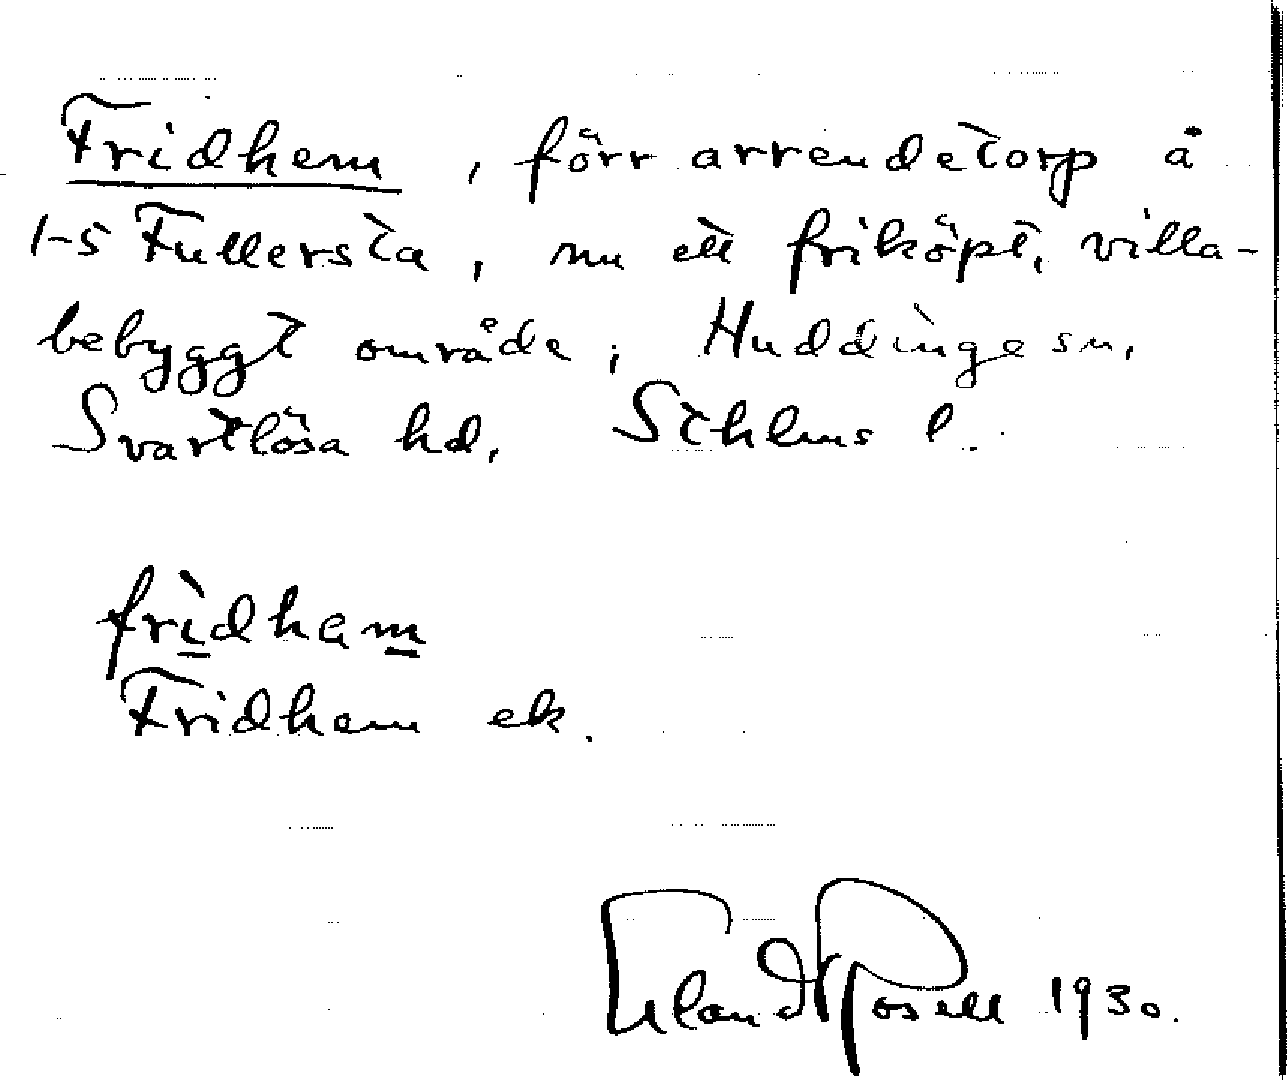 Fridhem, förr arrendetorp å
1-5 Fullersta, nu ett friköpt, villa-
bebyggt område, Huddinge sn,
Svartlösa hd, Sthlms l.
frìdham
Fridhem ek.
Erland Rosell 1930.